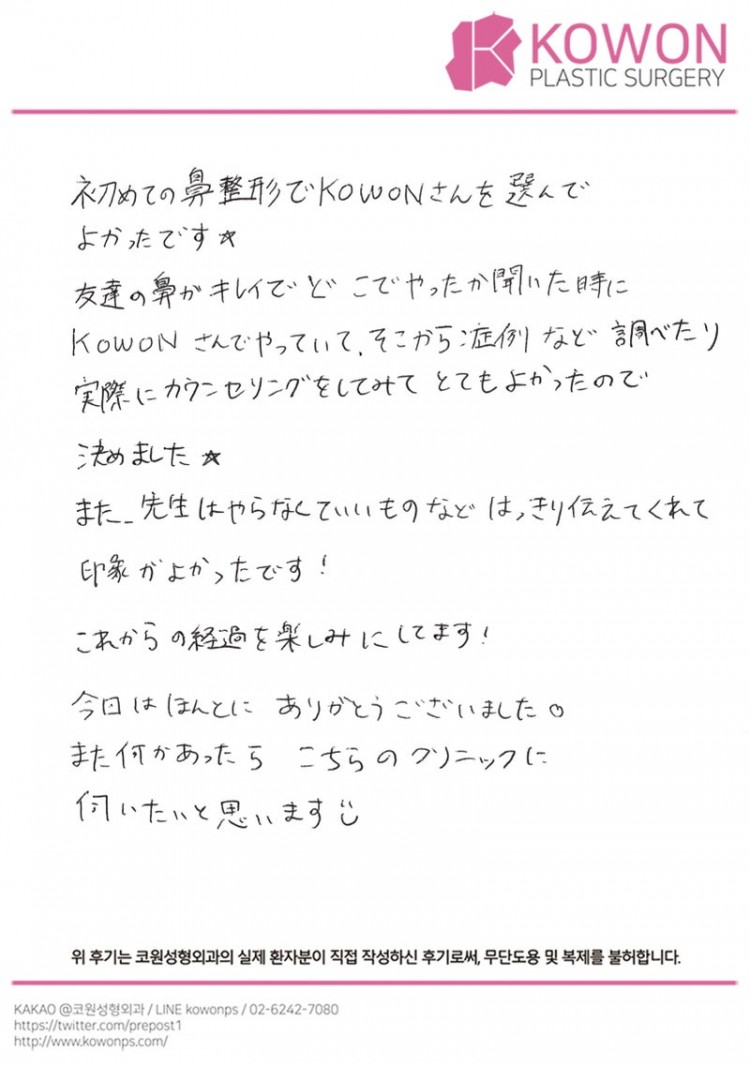 KOWON
PLASTIC SURGERY
初めての鼻整形でKOWONさんを選んで
よかったです☆
友達の鼻がキレイでどこでやったか聞いた時に
KOWONさんでやっていて、そこから症例など調べたり
実際にカウンセリングをしてみてとてもよかったので
決めました☆
また_先生はやらなくていいものなどはっきり伝えてくれて
印象がよかったです!
これからの経過を楽しみにしてます!
今日はほんとにありがとうございました。
また何かあったらこちらのクリニックに
伺いたいと思います
위 후기는 코원성형외과의 실제 환자분이 직접 작성하신 후기로써, 무단도용 및 복제를 불허합니다.
KAKAO @코원성형외과 / LINE kowonps / 02-6242-7080
https://twitter.com/prepost1
http://www.kowonps.com/